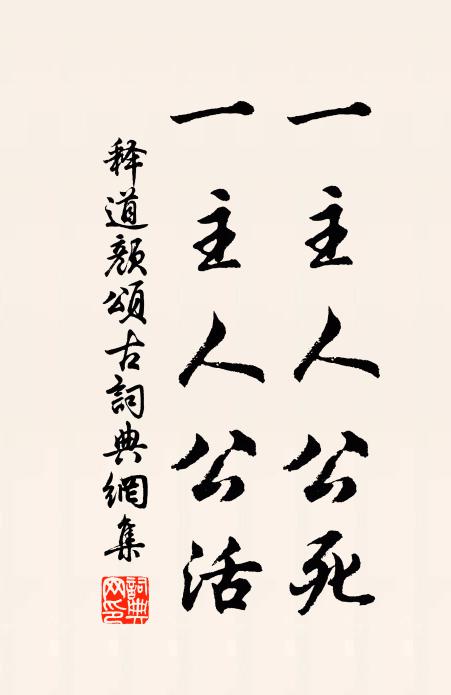 一主人公死
一主人公活
释道颜颂古詞典網集
詞典网印